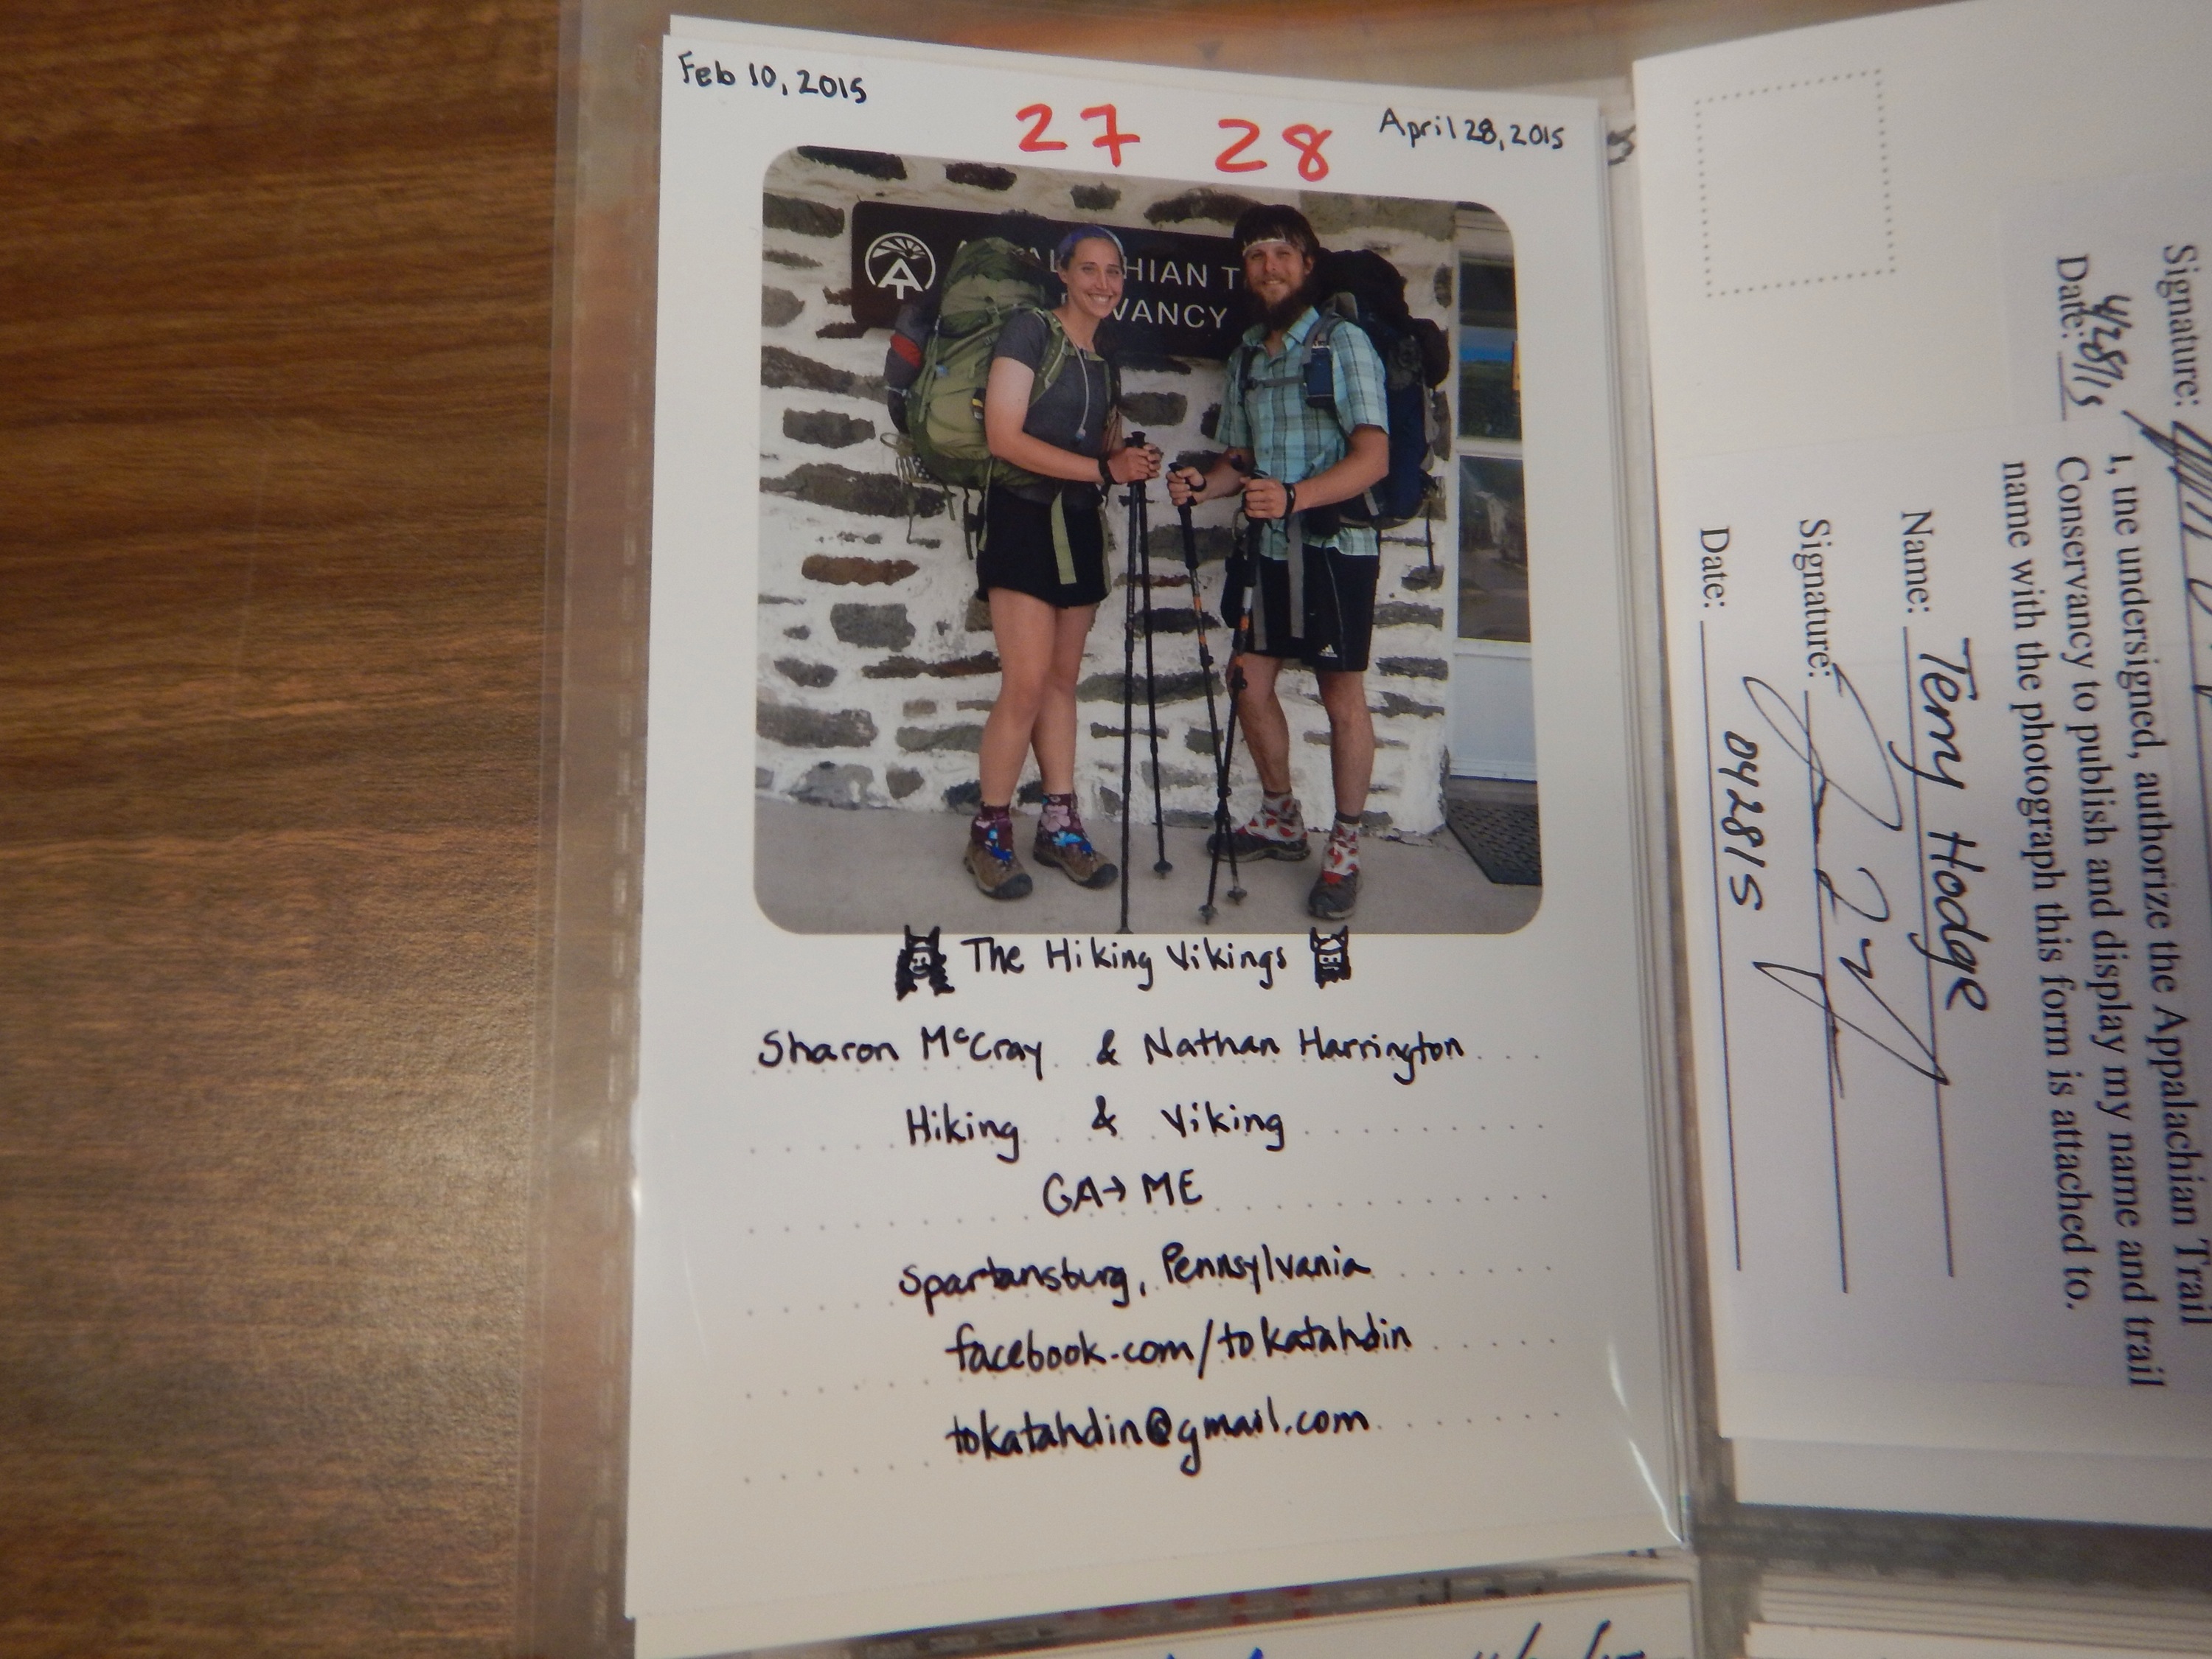 Feb 10, 2015
27 28
April 28, 2015
HIAN T
VANCY
The Hiking Vikings
Sharon McCray & Nathan Harrington
Hiking & Viking
GA→ME
Spartansburg, Pennsylvania
facebook.com/tokatahdin
tokatahdin@gmail.com
Signature:
Date: 4/28/15
I, the undersigned, authorize the Appalachian Trail
Conservancy to publish and display my name and trail
name with the photograph this form is attached to.
Name: Terry Hodge
Signature:
Date: 042815